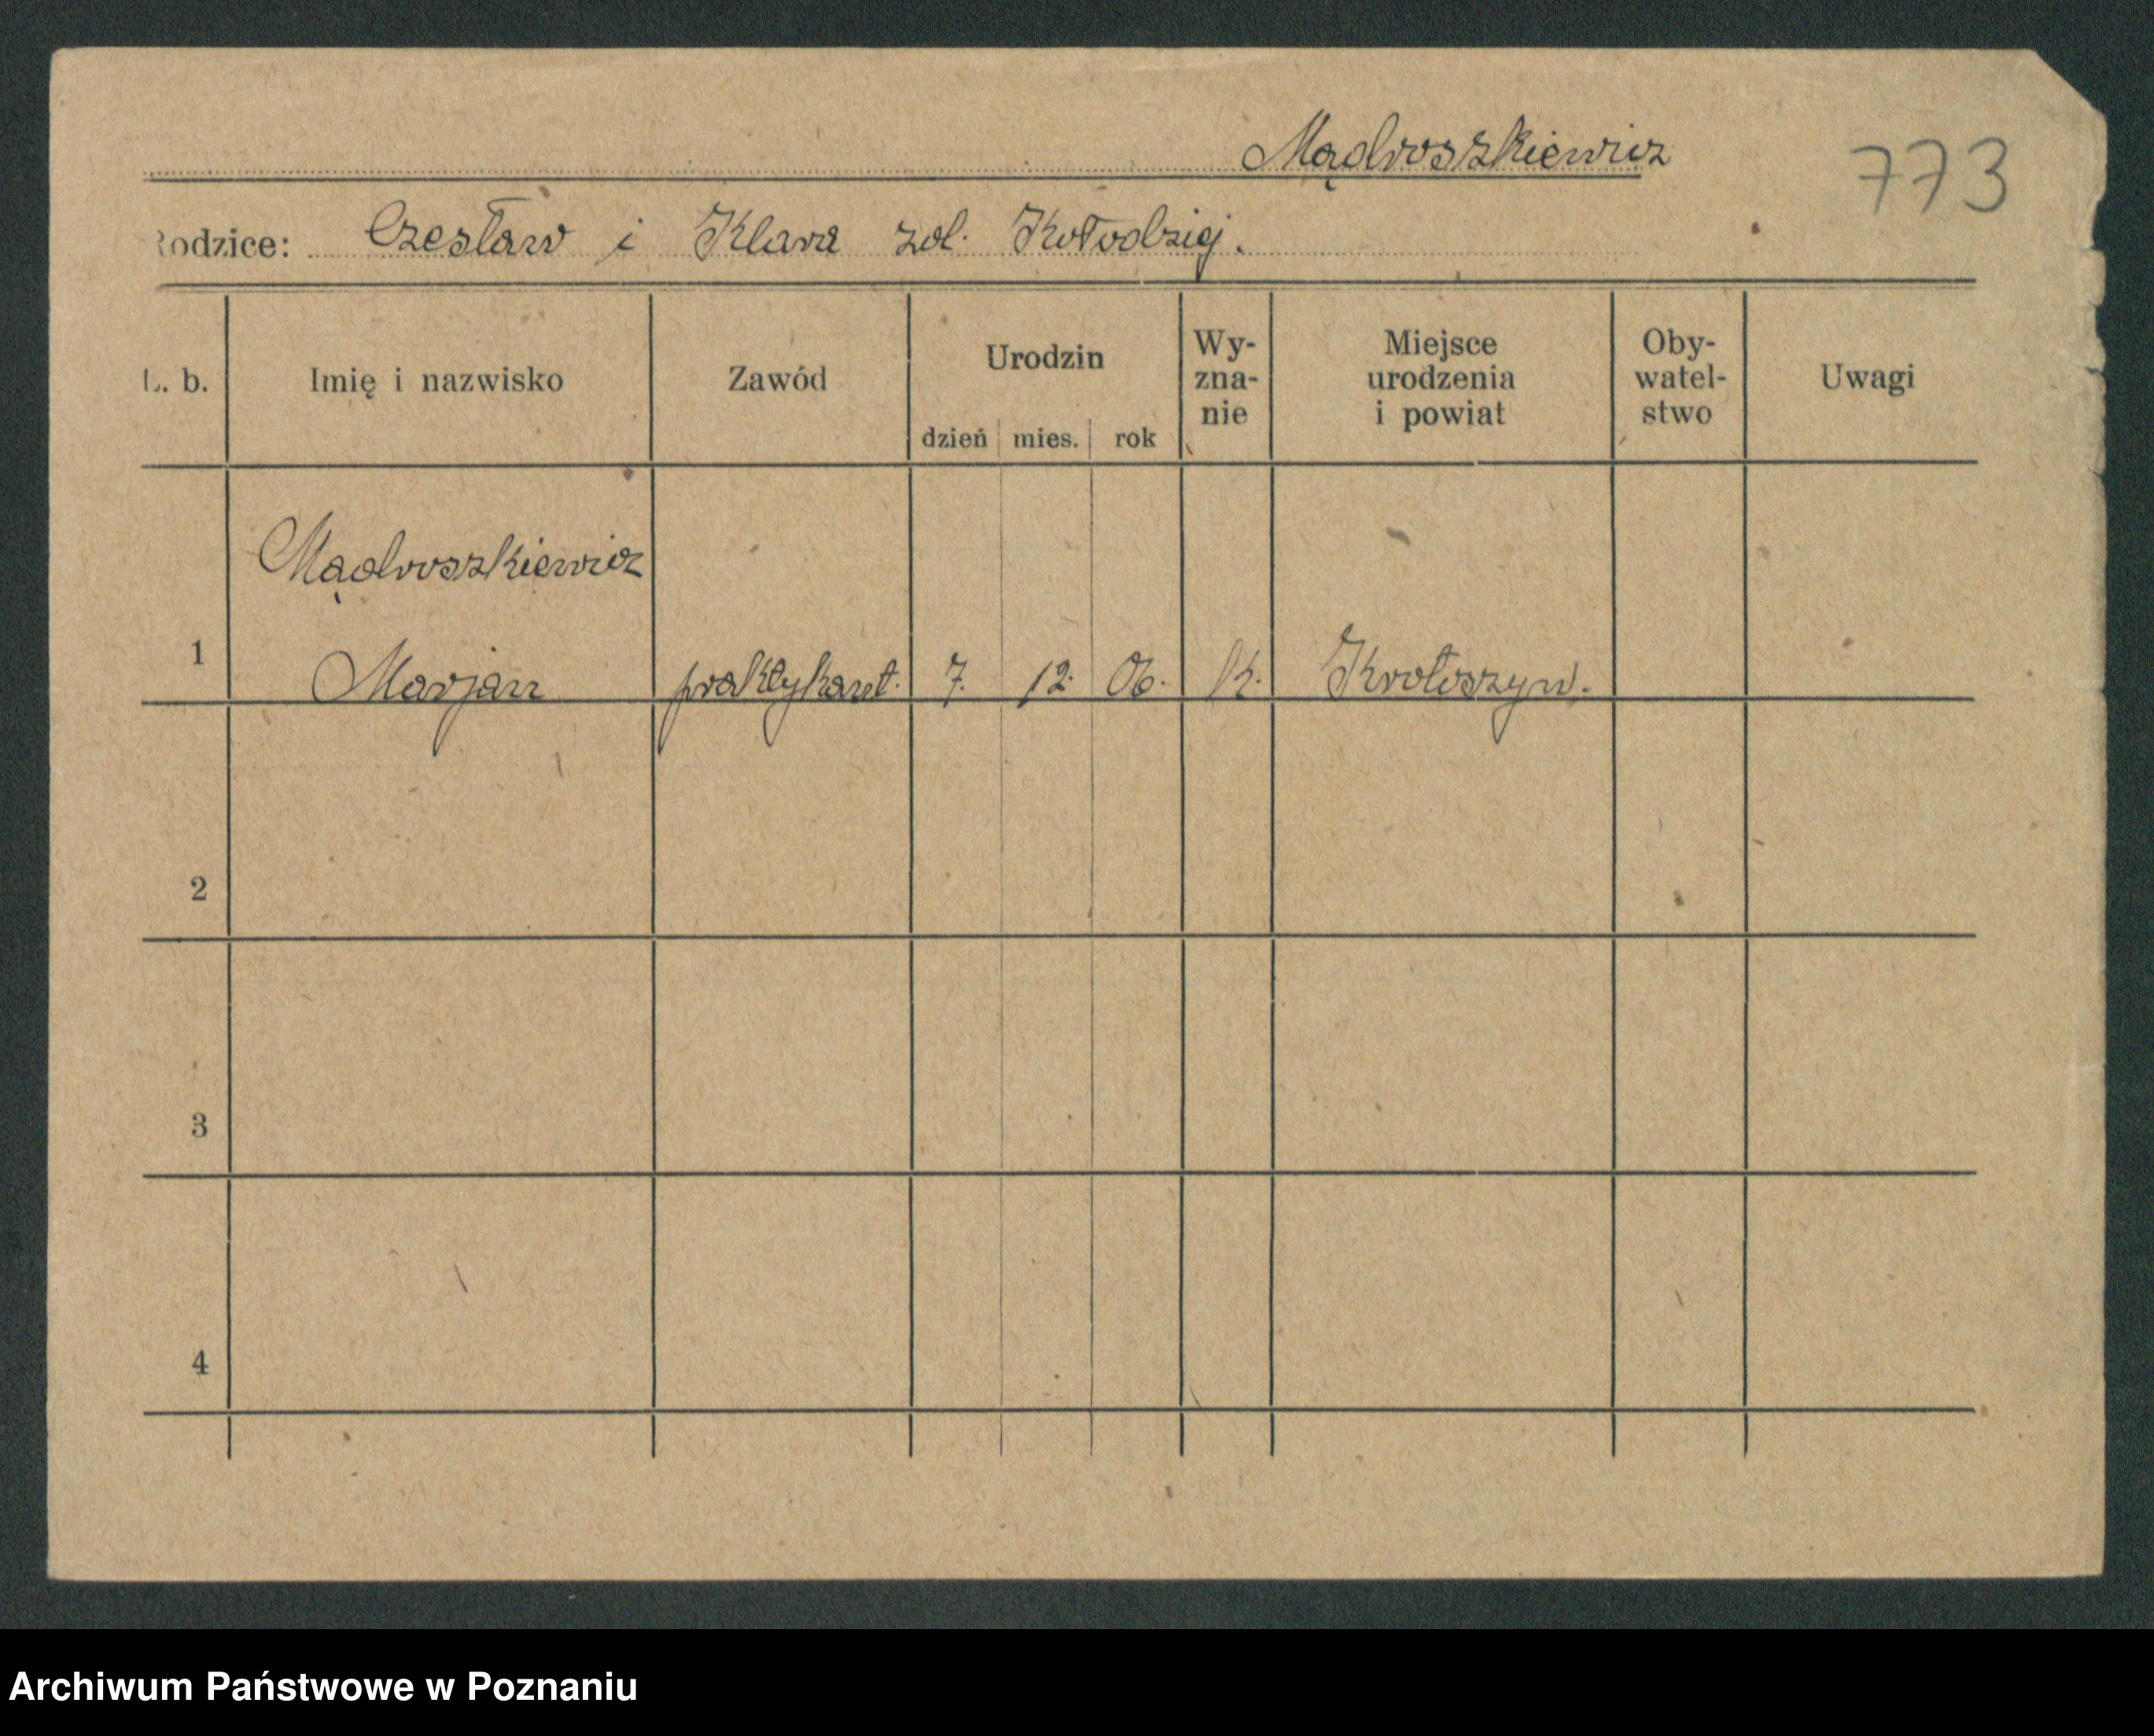 Mądroszkiewicz
773
Rodzice: Czesław i Klara zd. Kołodziej.
L. b.
Imię i nazwisko
Zawód
Urodzin
dzień mies. rok
Wy-
zna-
nie
Miejsce
urodzenia
i powiat
Oby-
watel-
stwo
Uwagi
Mądroszkiewicz
1 Marjan praktykant. 7. 12. 06. k. Krotoszyn.
2
3
4
Archiwum Państwowe w Poznaniu